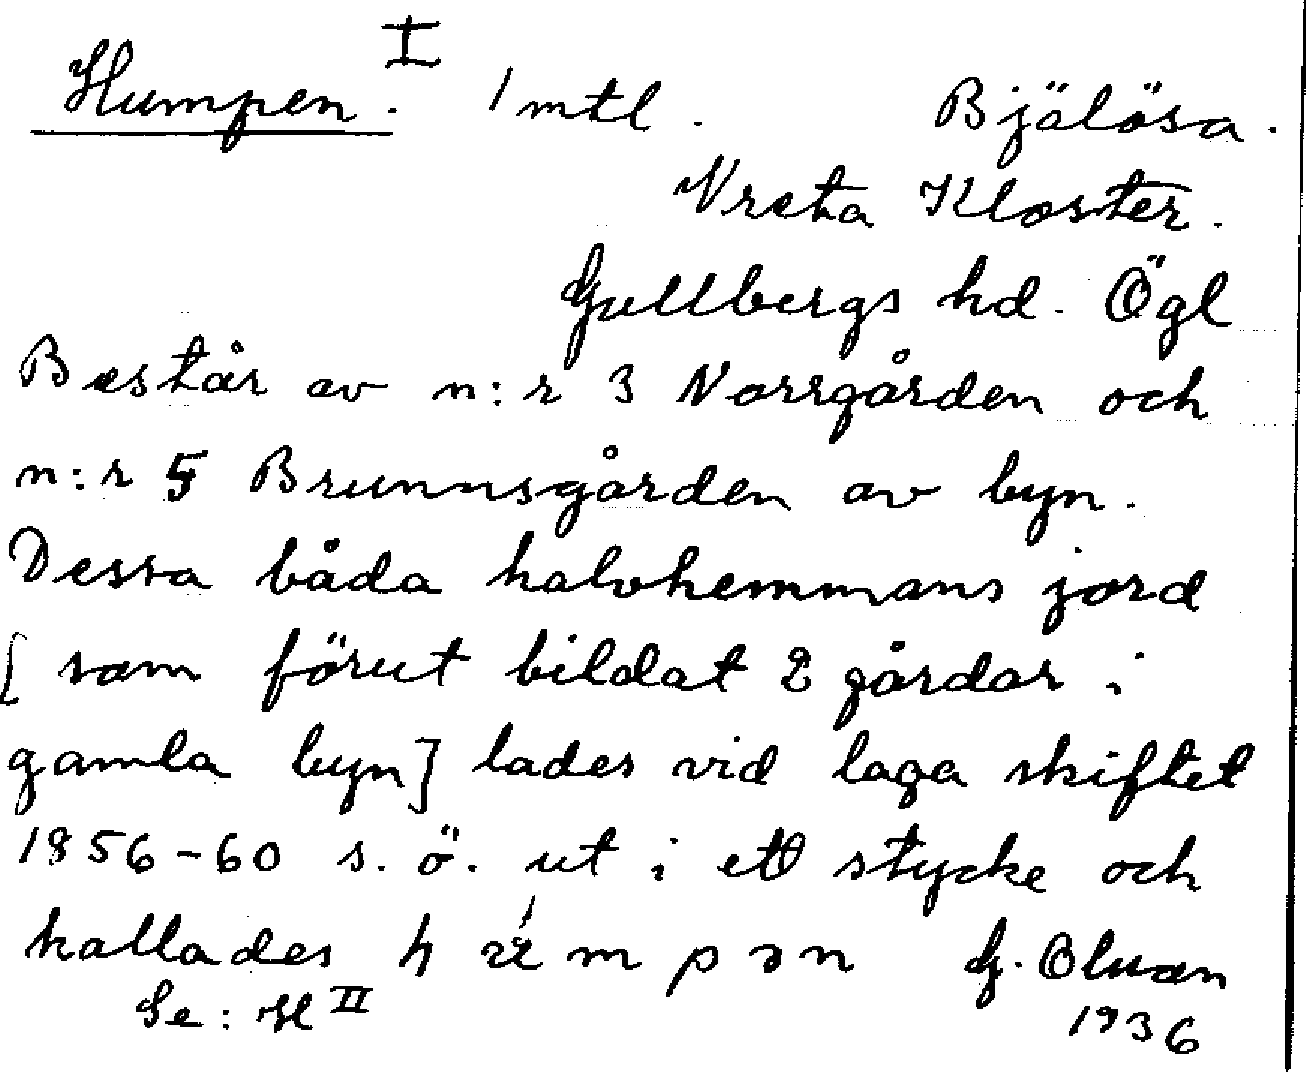 Humpen. I 1 mtl. Bjälösa.
Vreta Kloster.
Gullbergs hd. Ögl
Består av n:r 3 Norrgården och
n:r 5 Brunnsgården av byn.
Dessa båda halvhemmans jord
[som förut bildat 2 gårdar i
gamla byn] lades vid laga skiftet
1856-60 s.ö. ut i ett stycke och
kallades mpən G.
Se: H II 1936